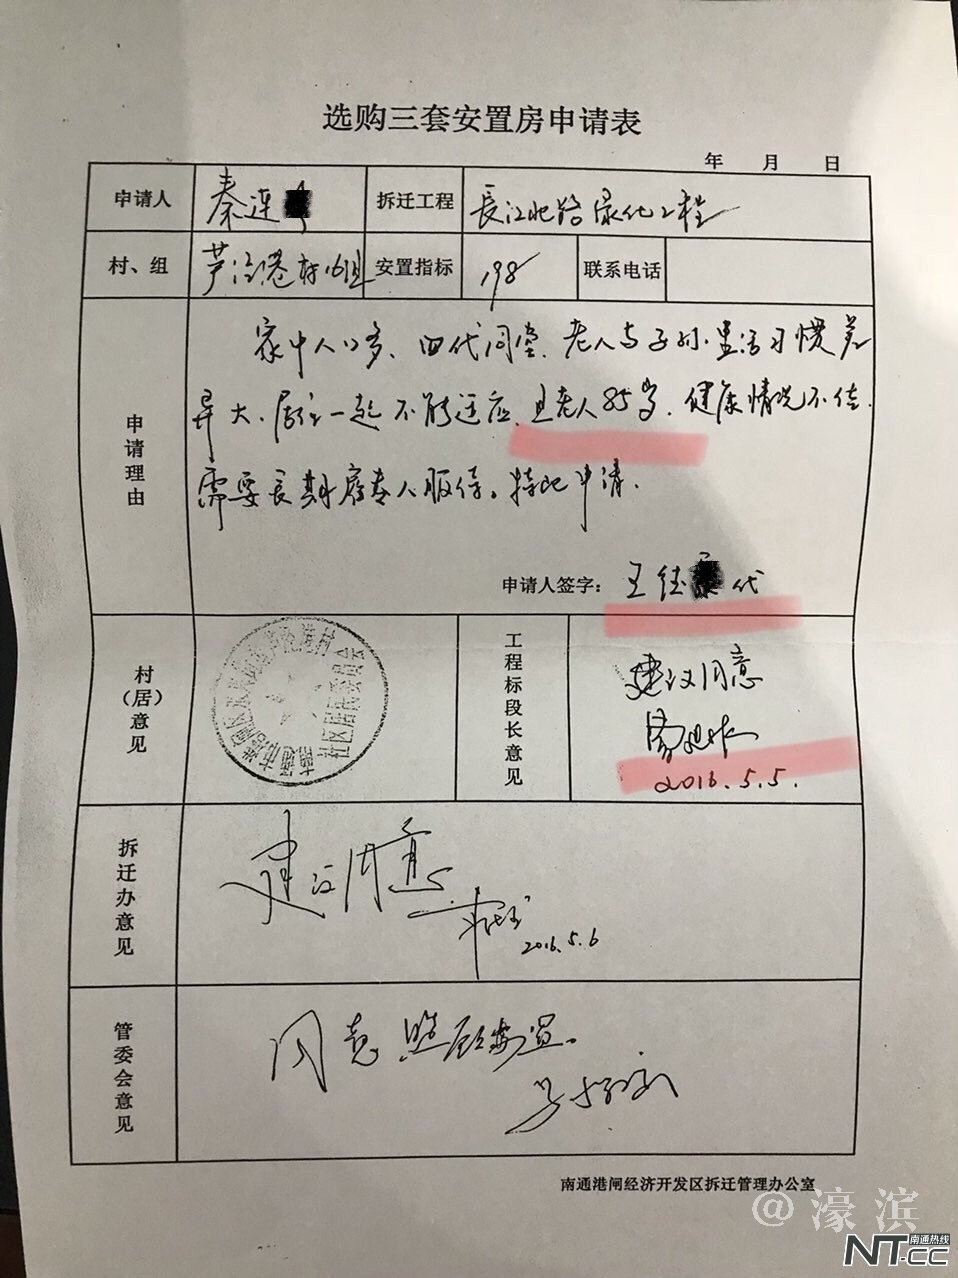 选购三套安置房申请表
年 月 日
申请人 秦连 拆迁工程 長江北路绿化工程
村、组 芦泾港村16组 安置指标 198 联系电话
申请理由
家中人口多、四代同堂、老人与子孙生活习惯差
异大、居住一起不能适应,且老人85岁、健康情况不佳.
需要长期 专人服侍。特此申请.
申请人签字: 王 代
村(居)意见
社区居民委员会
工程标段长意见
建议同意
2016.5.5.
拆迁办意见
建议同意
2016.5.6
管委会意见
同意照顾安置。
南通港闸经济开发区拆迁管理办公室
@濠滨
南通热线
NT.CC